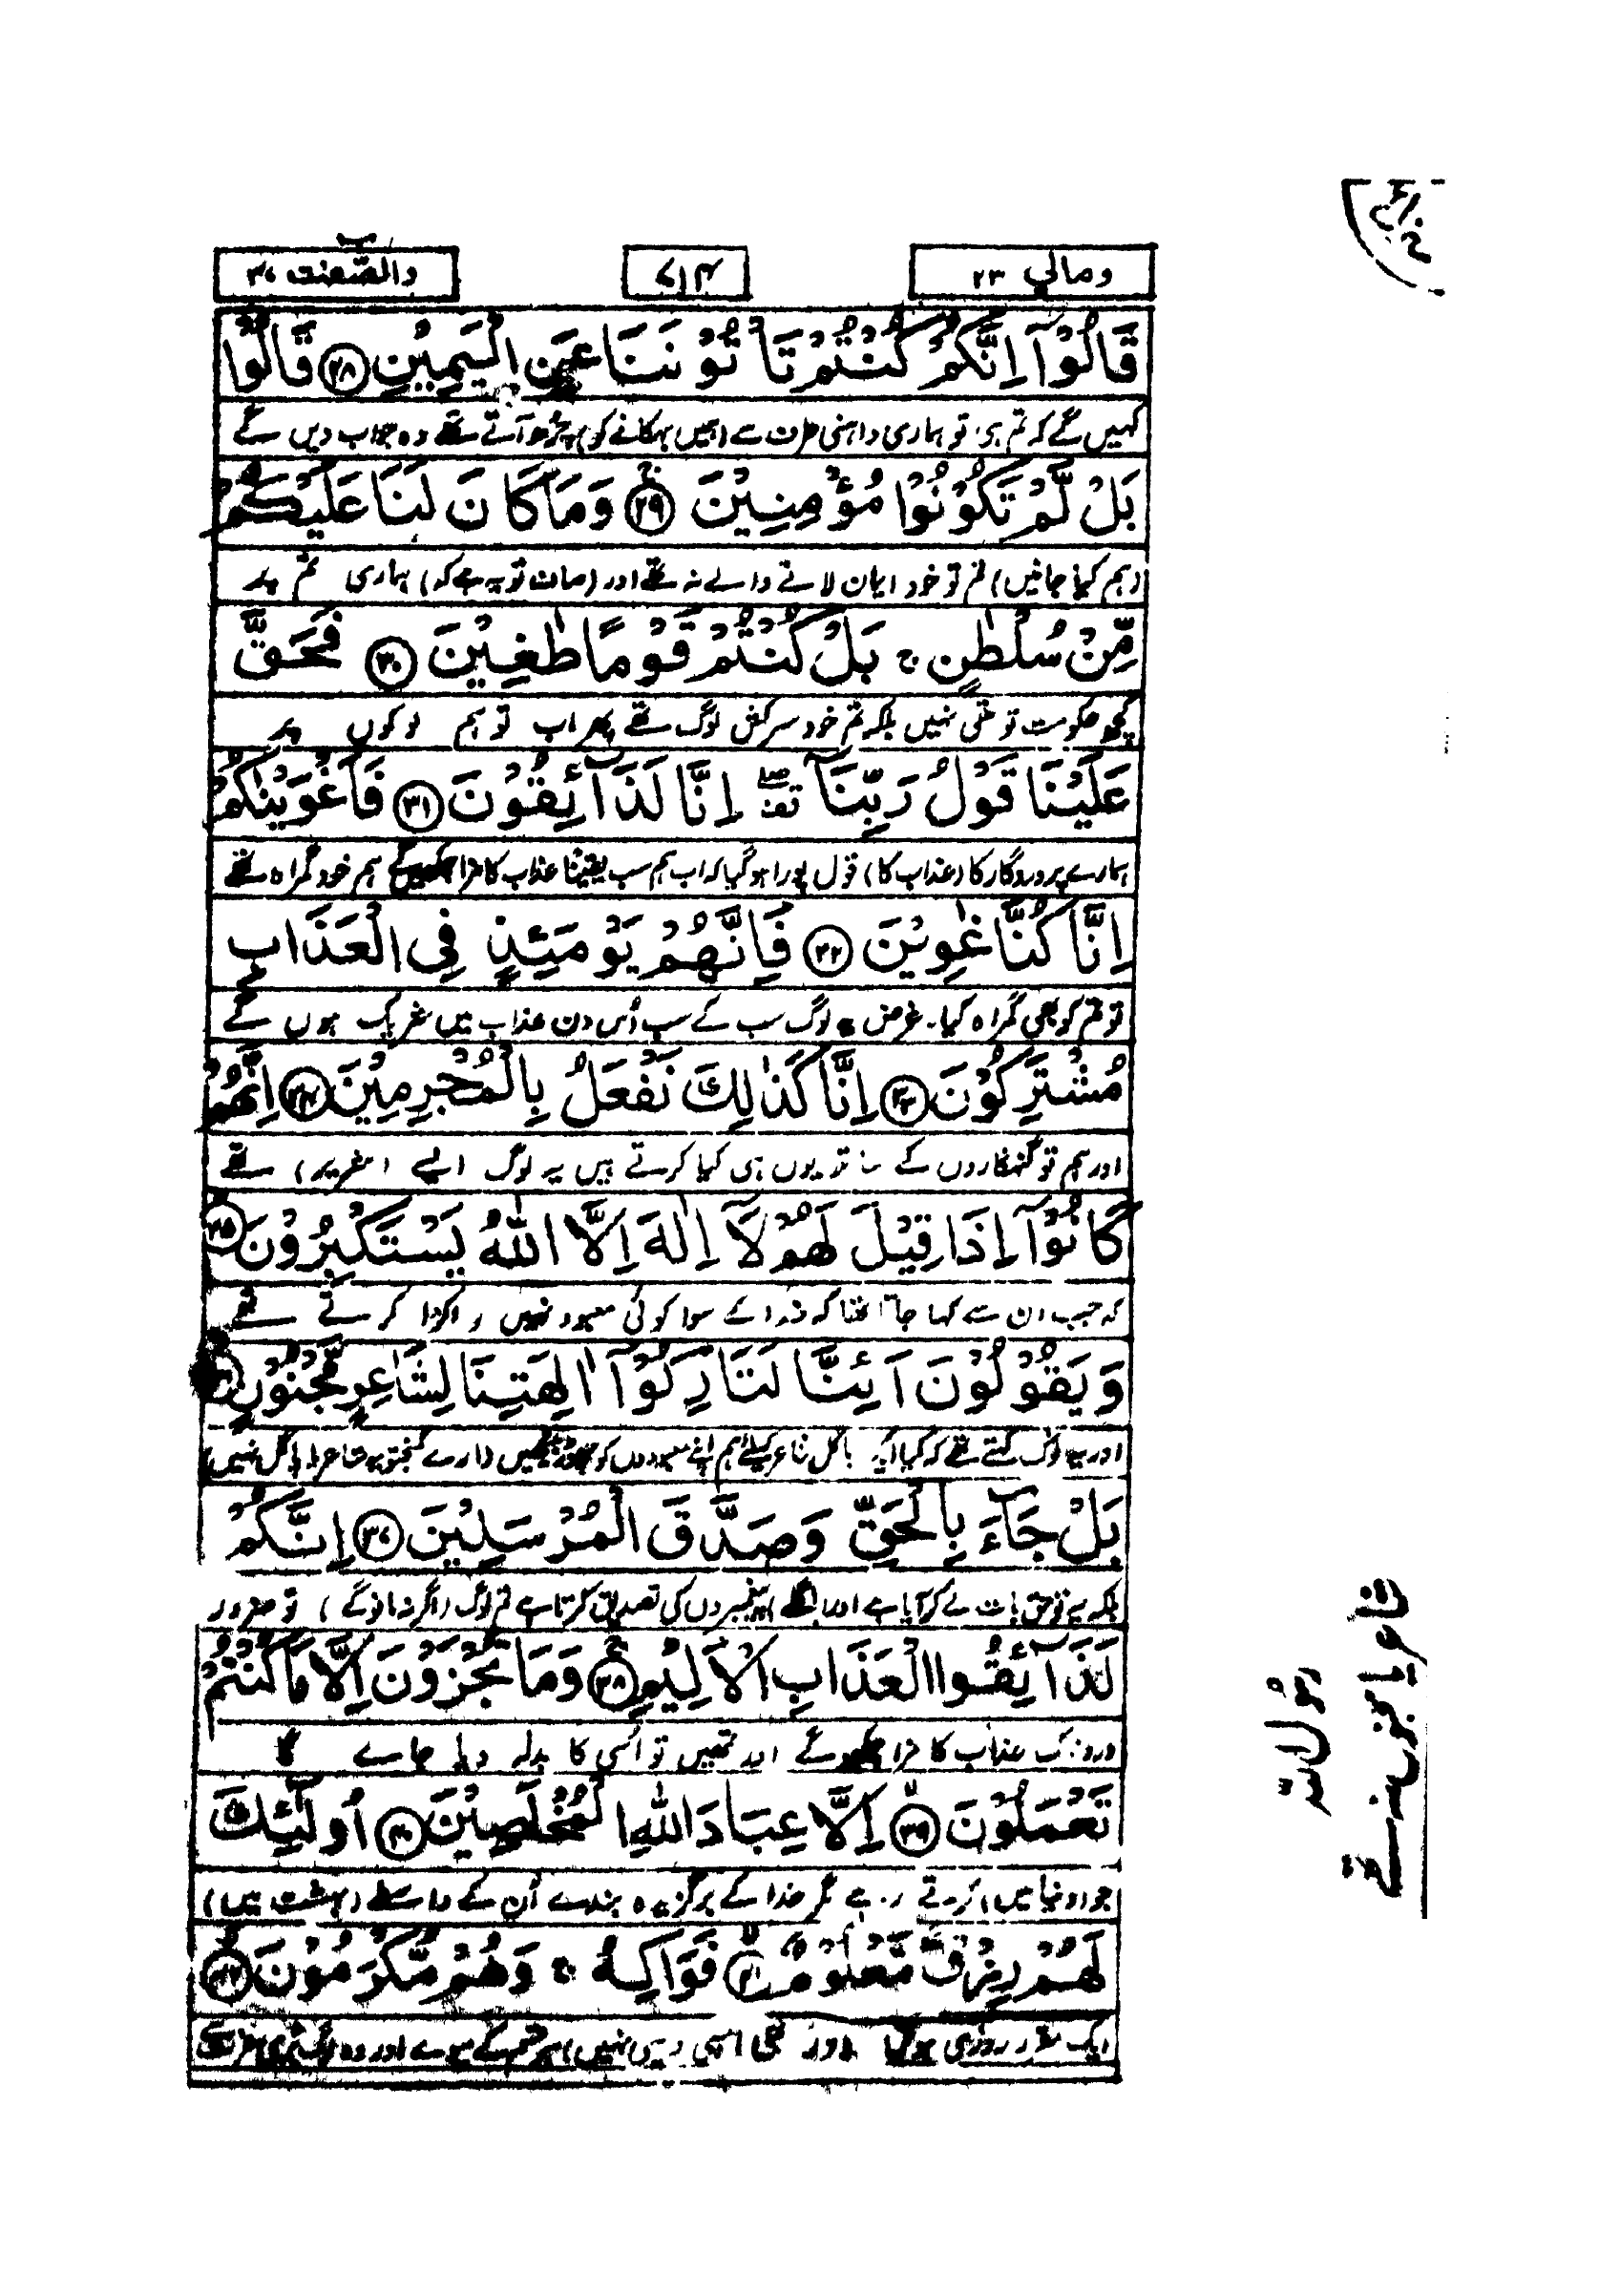 ومالي ۲۳
۷۱۴
والصّٰفّٰت ۳۷
قَالُوْۤا اِنَّكُمْ كُنْتُمْ تَاْتُوْنَنَا عَنِ الْيَمِيْنِ ﴿۲۸﴾ قَالُوْا
کہیں گے کہ تم ہی تو ہماری داہنی طرف سے (ہمیں بہکانے کو) چڑھ آتے تھے وہ جواب دیں گے
بَلْ لَّمْ تَكُوْنُوْا مُؤْمِنِيْنَ ﴿۲۹﴾ وَمَا كَانَ لَنَا عَلَيْكُمْ
(ہم کیا جانیں) تم تو خود ایمان لانے والے نہ تھے اور (صاف تو یہ ہے کہ) ہماری تم پر
مِّنْ سُلْطٰنٍ ۚ بَلْ كُنْتُمْ قَوْمًا طٰغِيْنَ ﴿۳۰﴾ فَحَقَّ
کچھ حکومت تو تھی نہیں بلکہ تم خود سرکش لوگ تھے پھر اب تو ہم لوگوں پر
عَلَيْنَا قَوْلُ رَبِّنَاۤ ۖ اِنَّا لَذَآئِقُوْنَ ﴿۳۱﴾ فَاَغْوَيْنٰكُمْ
ہمارے پروردگار کا (عذاب کا) قول پورا ہو گیا کہ اب ہم سب یقیناً عذاب کا مزا چکھیں گے ہم خود گمراہ تھے
اِنَّا كُنَّا غٰوِيْنَ ﴿۳۲﴾ فَاِنَّهُمْ يَوْمَئِذٍ فِى الْعَذَابِ
تو تم کو بھی گمراہ کیا۔ غرض یہ لوگ سب کے سب اُس دن عذاب میں شریک ہوں گے
مُشْتَرِكُوْنَ ﴿۳۳﴾ اِنَّا كَذٰلِكَ نَفْعَلُ بِالْمُجْرِمِيْنَ ﴿۳۴﴾ اِنَّهُمْ
اور ہم تو گنہگاروں کے ساتھ یوں ہی کیا کرتے ہیں یہ لوگ ایسے (شریر) تھے
كَانُوْۤا اِذَا قِيْلَ لَهُمْ لَاۤ اِلٰهَ اِلَّا اللّٰهُ يَسْتَكْبِرُوْنَ ﴿۳۵﴾
کہ جب ان سے کہا جاتا تھا کہ خدا کے سوا کوئی معبود نہیں تو اکڑا کرتے تھے
وَيَقُوْلُوْنَ اَئِنَّا لَتَارِكُوْۤا اٰلِهَتِنَا لِشَاعِرٍ مَّجْنُوْنٍ
اور یہ لوگ کہتے تھے کہ کیا ایک پاگل شاعر کیلئے ہم اپنے معبودوں کو چھوڑ بیٹھیں (ارے کمبختو یہ شاعر یا پاگل نہیں)
بَلْ جَآءَ بِالْحَقِّ وَصَدَّقَ الْمُرْسَلِيْنَ ﴿۳۷﴾ اِنَّكُمْ
بلکہ یہ تو حق بات لے کر آیا ہے اور (اگلے) پیغمبروں کی تصدیق کرتا ہے تم لوگ (اگر نہ مانو گے) تو ضرور
لَذَآئِقُوا الْعَذَابِ الْاَلِيْمِ ﴿۳۸﴾ وَمَا تُجْزَوْنَ اِلَّا مَا كُنْتُمْ
دردناک عذاب کا مزا چکھو گے اور تمہیں تو اُسی کا بدلہ دیا جائے گا
تَعْمَلُوْنَ ﴿۳۹﴾ اِلَّا عِبَادَ اللّٰهِ الْمُخْلَصِيْنَ ﴿۴۰﴾ اُولٰٓئِكَ
جو (دنیا میں) کرتے رہے مگر خدا کے برگزیدہ بندے اُن کے واسطے (بہشت میں)
لَهُمْ رِزْقٌ مَّعْلُوْمٌ ﴿۴۱﴾ فَوَاكِهُ ۚ وَهُمْ مُّكْرَمُوْنَ ﴿۴۲﴾
ایک مقرر روزی ہوگی اور بھی ایسی ویسی نہیں) ہر قسم کے میوے اور وہ لوگ بڑی عزت سے
رسول اللہ
شاعر یا مجنوں نہ تھے